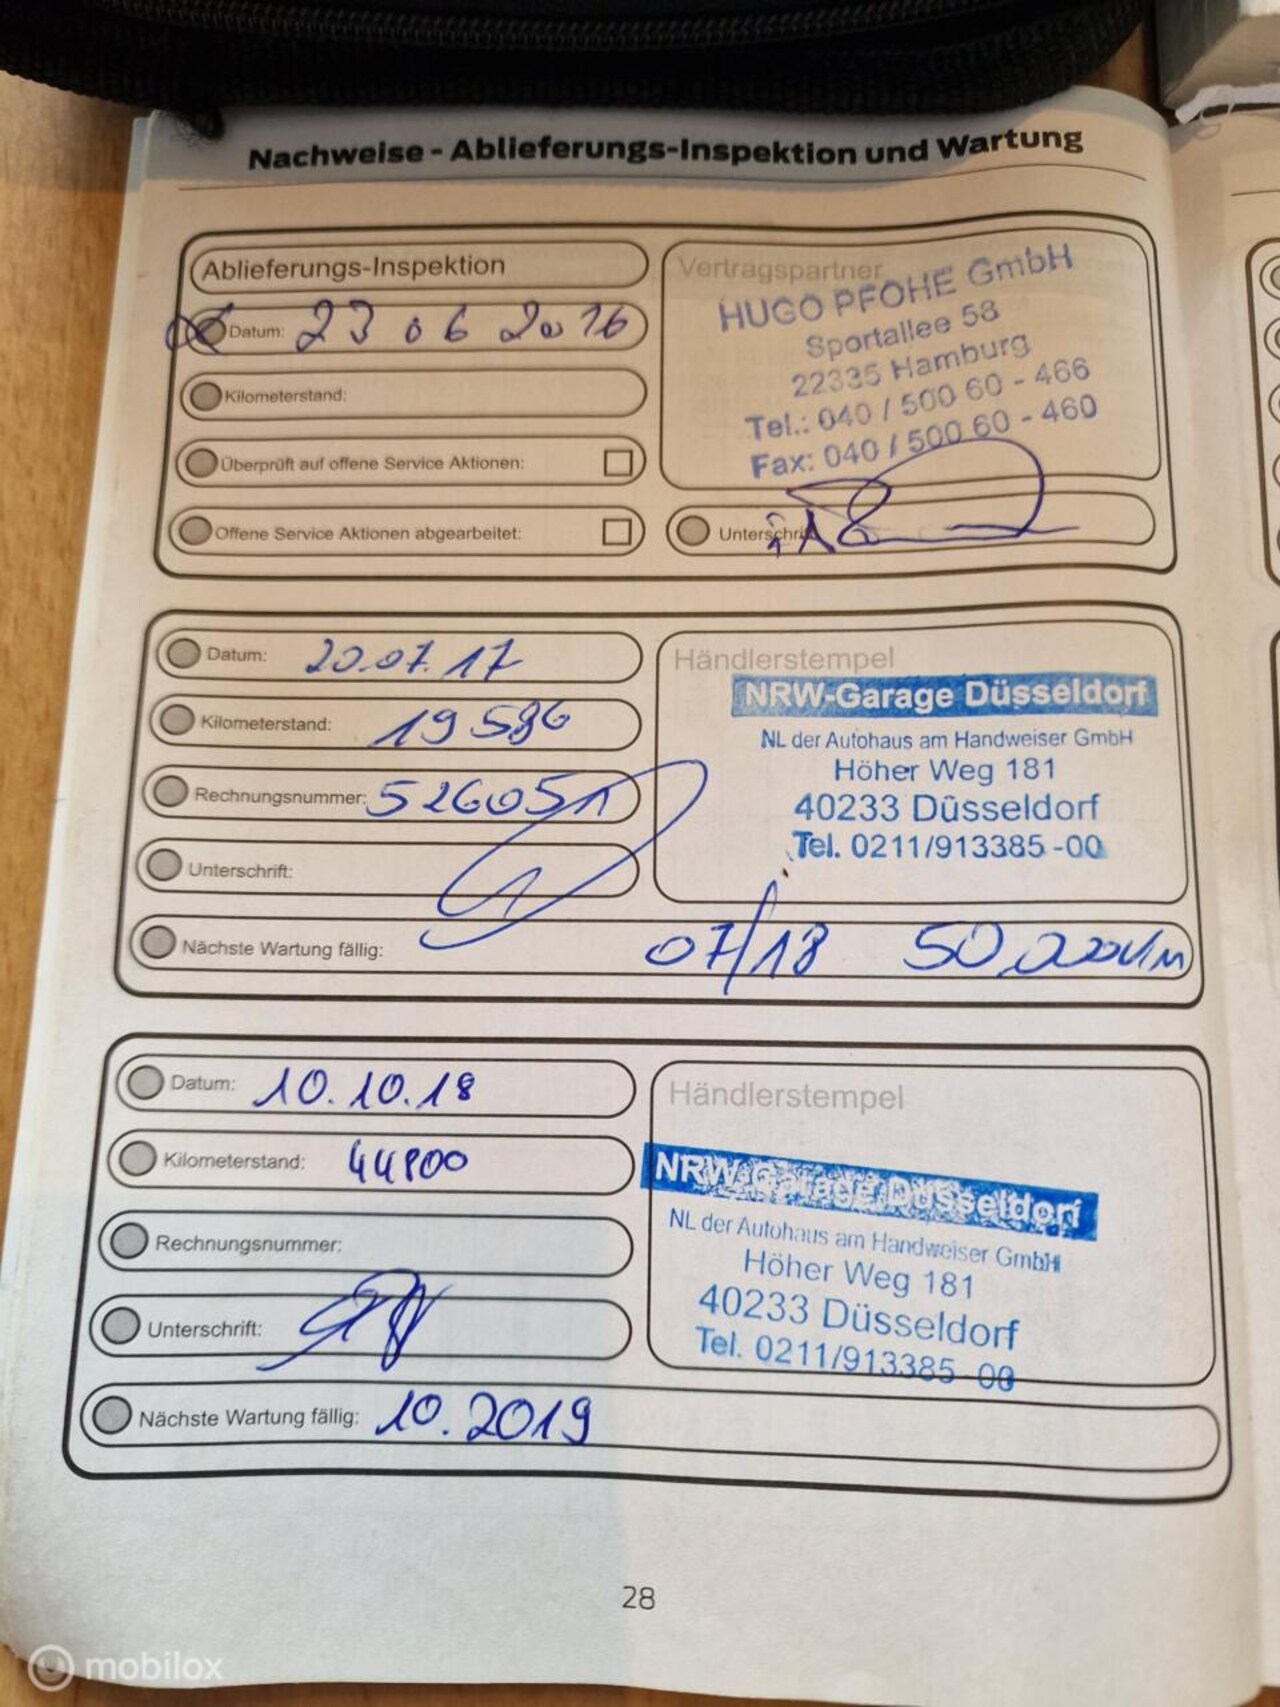 Nachweise - Ablieferungs-Inspektion und Wartung
Ablieferungs-Inspektion
Datum: 23 06 2016
Kilometerstand:
Überprüft auf offene Service Aktionen:
Offene Service Aktionen abgearbeitet:
Vertragspartner
HUGO PFOHE GmbH
Sportallee 58
22335 Hamburg
Tel.: 040 / 500 60 - 466
Fax: 040 / 500 60 - 460
Unterschrift
Datum: 20.07.17
Kilometerstand: 19586
Rechnungsnummer: 526051
Unterschrift:
Händlerstempel
NRW-Garage Düsseldorf
NL der Autohaus am Handweiser GmbH
Höher Weg 181
40233 Düsseldorf
Tel. 0211/913385-00
Nächste Wartung fällig: 07/18 50.000km
Datum: 10.10.18
Kilometerstand: 44800
Rechnungsnummer:
Unterschrift:
Händlerstempel
NRW-Garage Düsseldorf
NL der Autohaus am Handweiser GmbH
Höher Weg 181
40233 Düsseldorf
Tel. 0211/913385-00
Nächste Wartung fällig: 10.2019
28
mobilox